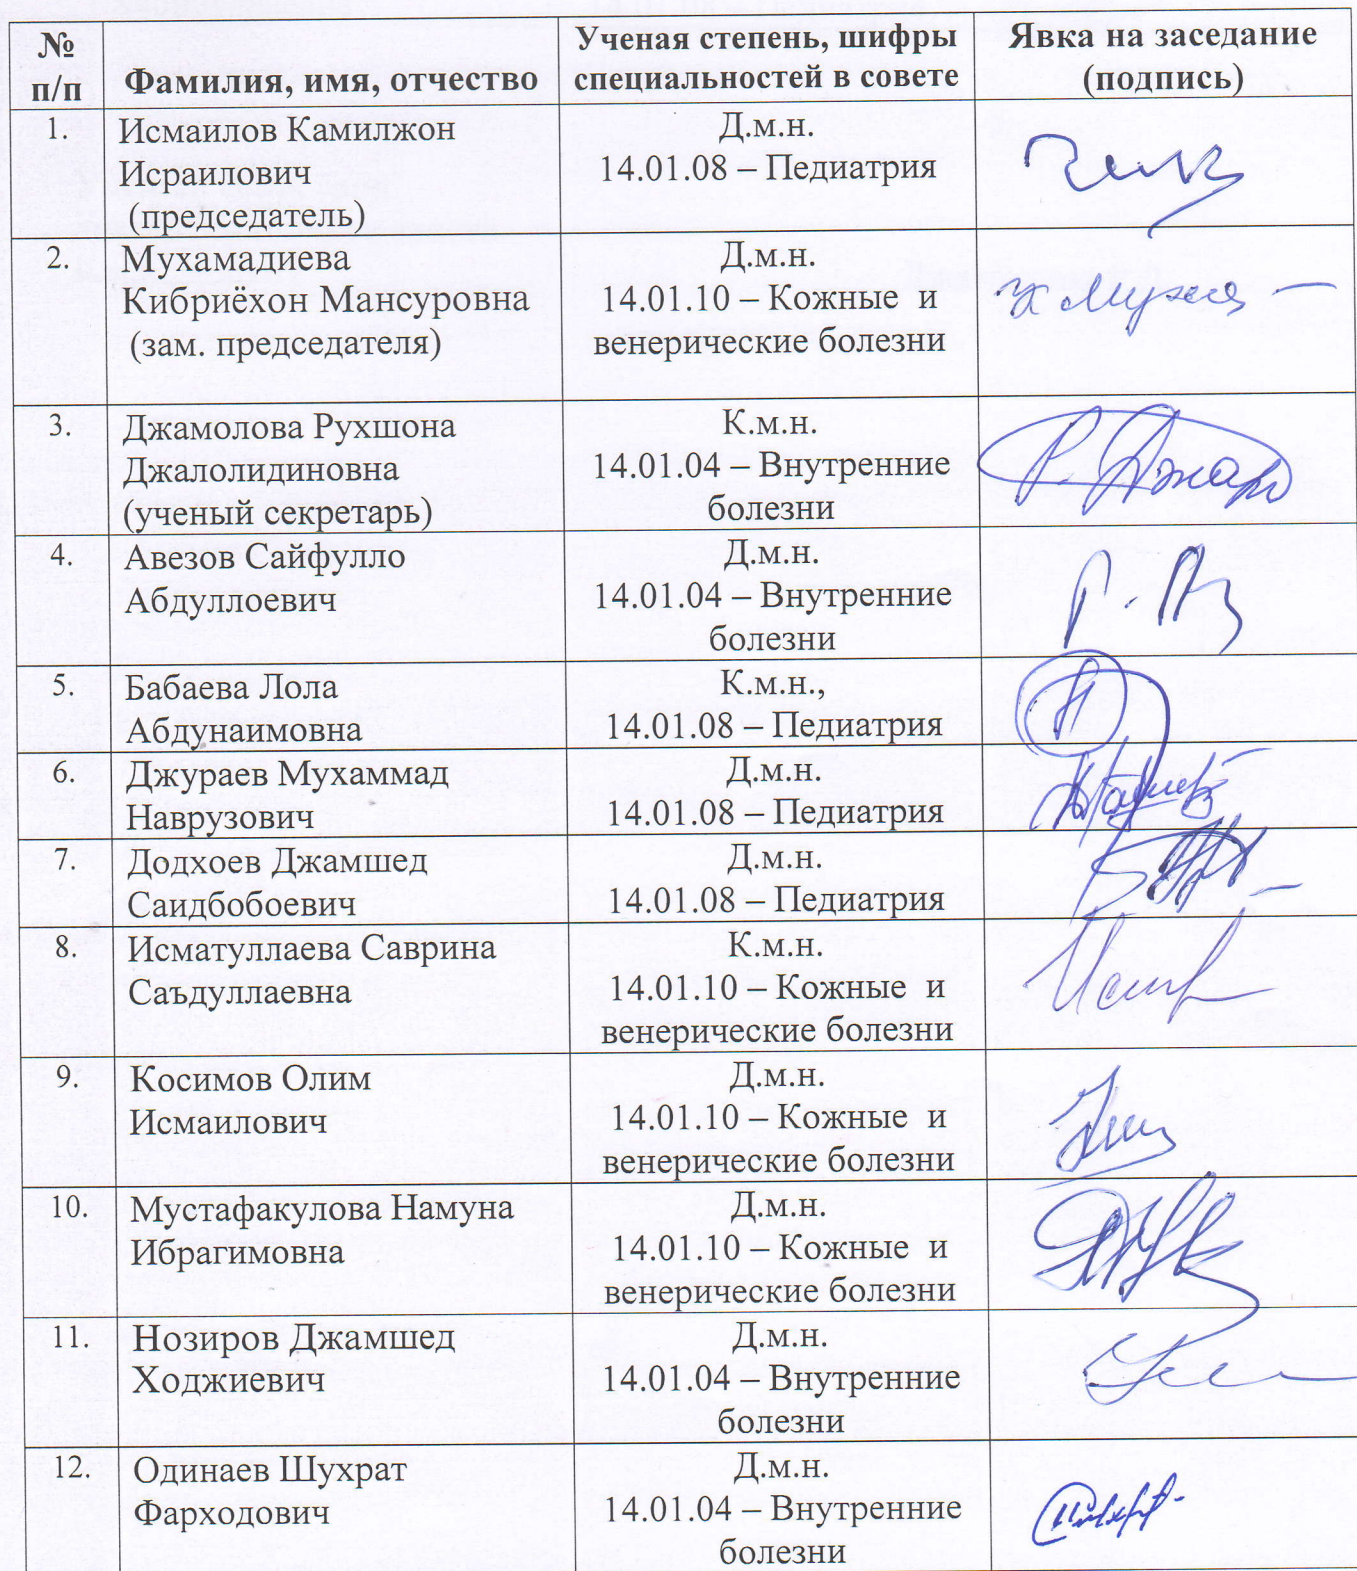 №
п/п
Фамилия, имя, отчество
Ученая степень, шифры
специальностей в совете
Явка на заседание
(подпись)
1.
Исмаилов Камилжон
Исраилович
(председатель)
Д.м.н.
14.01.08 – Педиатрия
2.
Мухамадиева
Кибриёхон Мансуровна
(зам. председателя)
Д.м.н.
14.01.10 – Кожные и
венерические болезни
3.
Джамолова Рухшона
Джалолидиновна
(ученый секретарь)
К.м.н.
14.01.04 – Внутренние
болезни
4.
Авезов Сайфулло
Абдуллоевич
Д.м.н.
14.01.04 – Внутренние
болезни
5.
Бабаева Лола
Абдунаимовна
К.м.н.,
14.01.08 – Педиатрия
6.
Джураев Мухаммад
Наврузович
Д.м.н.
14.01.08 – Педиатрия
7.
Додхоев Джамшед
Саидбобоевич
Д.м.н.
14.01.08 – Педиатрия
8.
Исматуллаева Саврина
Саъдуллаевна
К.м.н.
14.01.10 – Кожные и
венерические болезни
9.
Косимов Олим
Исмаилович
Д.м.н.
14.01.10 – Кожные и
венерические болезни
10.
Мустафакулова Намуна
Ибрагимовна
Д.м.н.
14.01.10 – Кожные и
венерические болезни
11.
Нозиров Джамшед
Ходжиевич
Д.м.н.
14.01.04 – Внутренние
болезни
12.
Одинаев Шухрат
Фарходович
Д.м.н.
14.01.04 – Внутренние
болезни